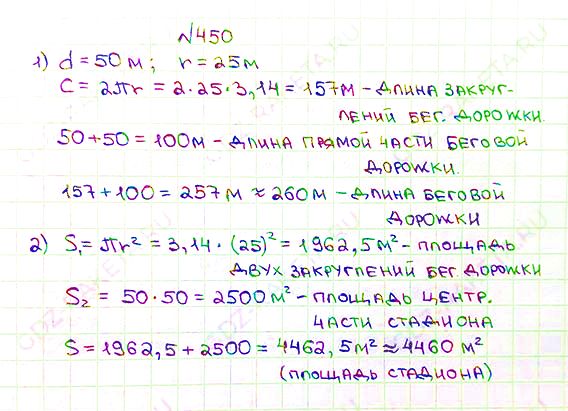 №450
1) d = 50 м; r = 25 м
C = 2πr = 2·25·3,14 = 157 м – ДЛИНА ЗАКРУГ-
ЛЕНИЙ БЕГ. ДОРОЖКИ.
50+50 = 100 м – ДЛИНА ПРЯМОЙ ЧАСТИ БЕГОВОЙ
ДОРОЖКИ.
157+100 = 257 м ≈ 260 м – ДЛИНА БЕГОВОЙ
ДОРОЖКИ
2) S₁ = πr² = 3,14 · (25)² = 1962,5 м² – ПЛОЩАДЬ
ДВУХ ЗАКРУГЛЕНИЙ БЕГ. ДОРОЖКИ
S₂ = 50·50 = 2500 м² – ПЛОЩАДЬ ЦЕНТР.
ЧАСТИ СТАДИОНА
S = 1962,5 + 2500 = 4462,5 м² ≈ 4460 м²
(ПЛОЩАДЬ СТАДИОНА)